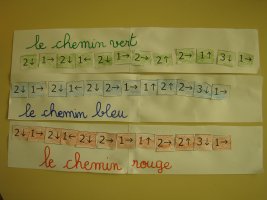 le chemin vert
2↓ 1→ 2↓ 1← 2↓ 1→ 2→ 2↑ 2→ 1↑ 3↓ 1→
2↓ 1→ 2↓ 1← 2↓ 2→ 1→ 1↑ 2↑ 2→ 3↓ 1→
le chemin bleu
2↓ 1→ 2↓ 1← 2↓ 2→ 1→ 1↑ 2→ 2↑ 3↓ 1→
le chemin rouge